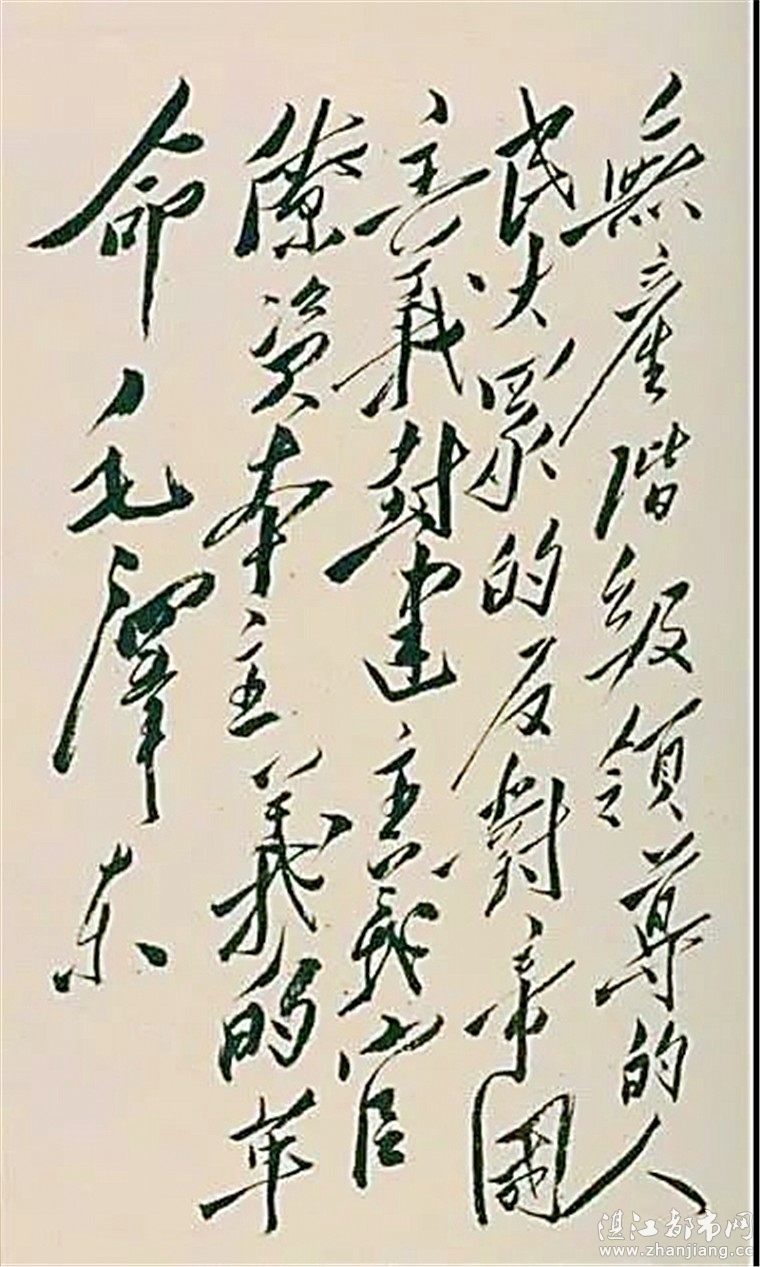 無產階級領導的人
民大眾的反對帝國
主義封建主義官
僚資本主義的革
命毛澤东
湛江都市网
www.zhanjiang.cc